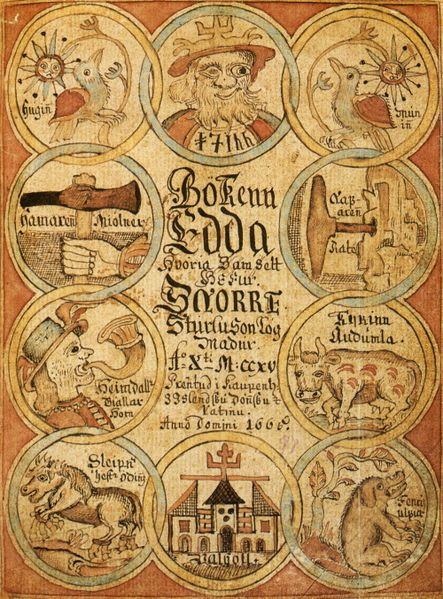 Hugiñ
Mun
iñ
Hamaren Miølner
Naf-
aren
Rate
Bokenn
Edda
Hvoria Samsett
Hefur
SNORRE
Sturluson Log
Madur
A° X ti M.CCXV
Prentud i Kaupenh:
Islendsku Dönsku &
Latinu.
Anno Domini 1666.
Heimdall
Giallar
Horn
Kyrinn
Audumla.
Sleipn
hest Odins
Valhöll.